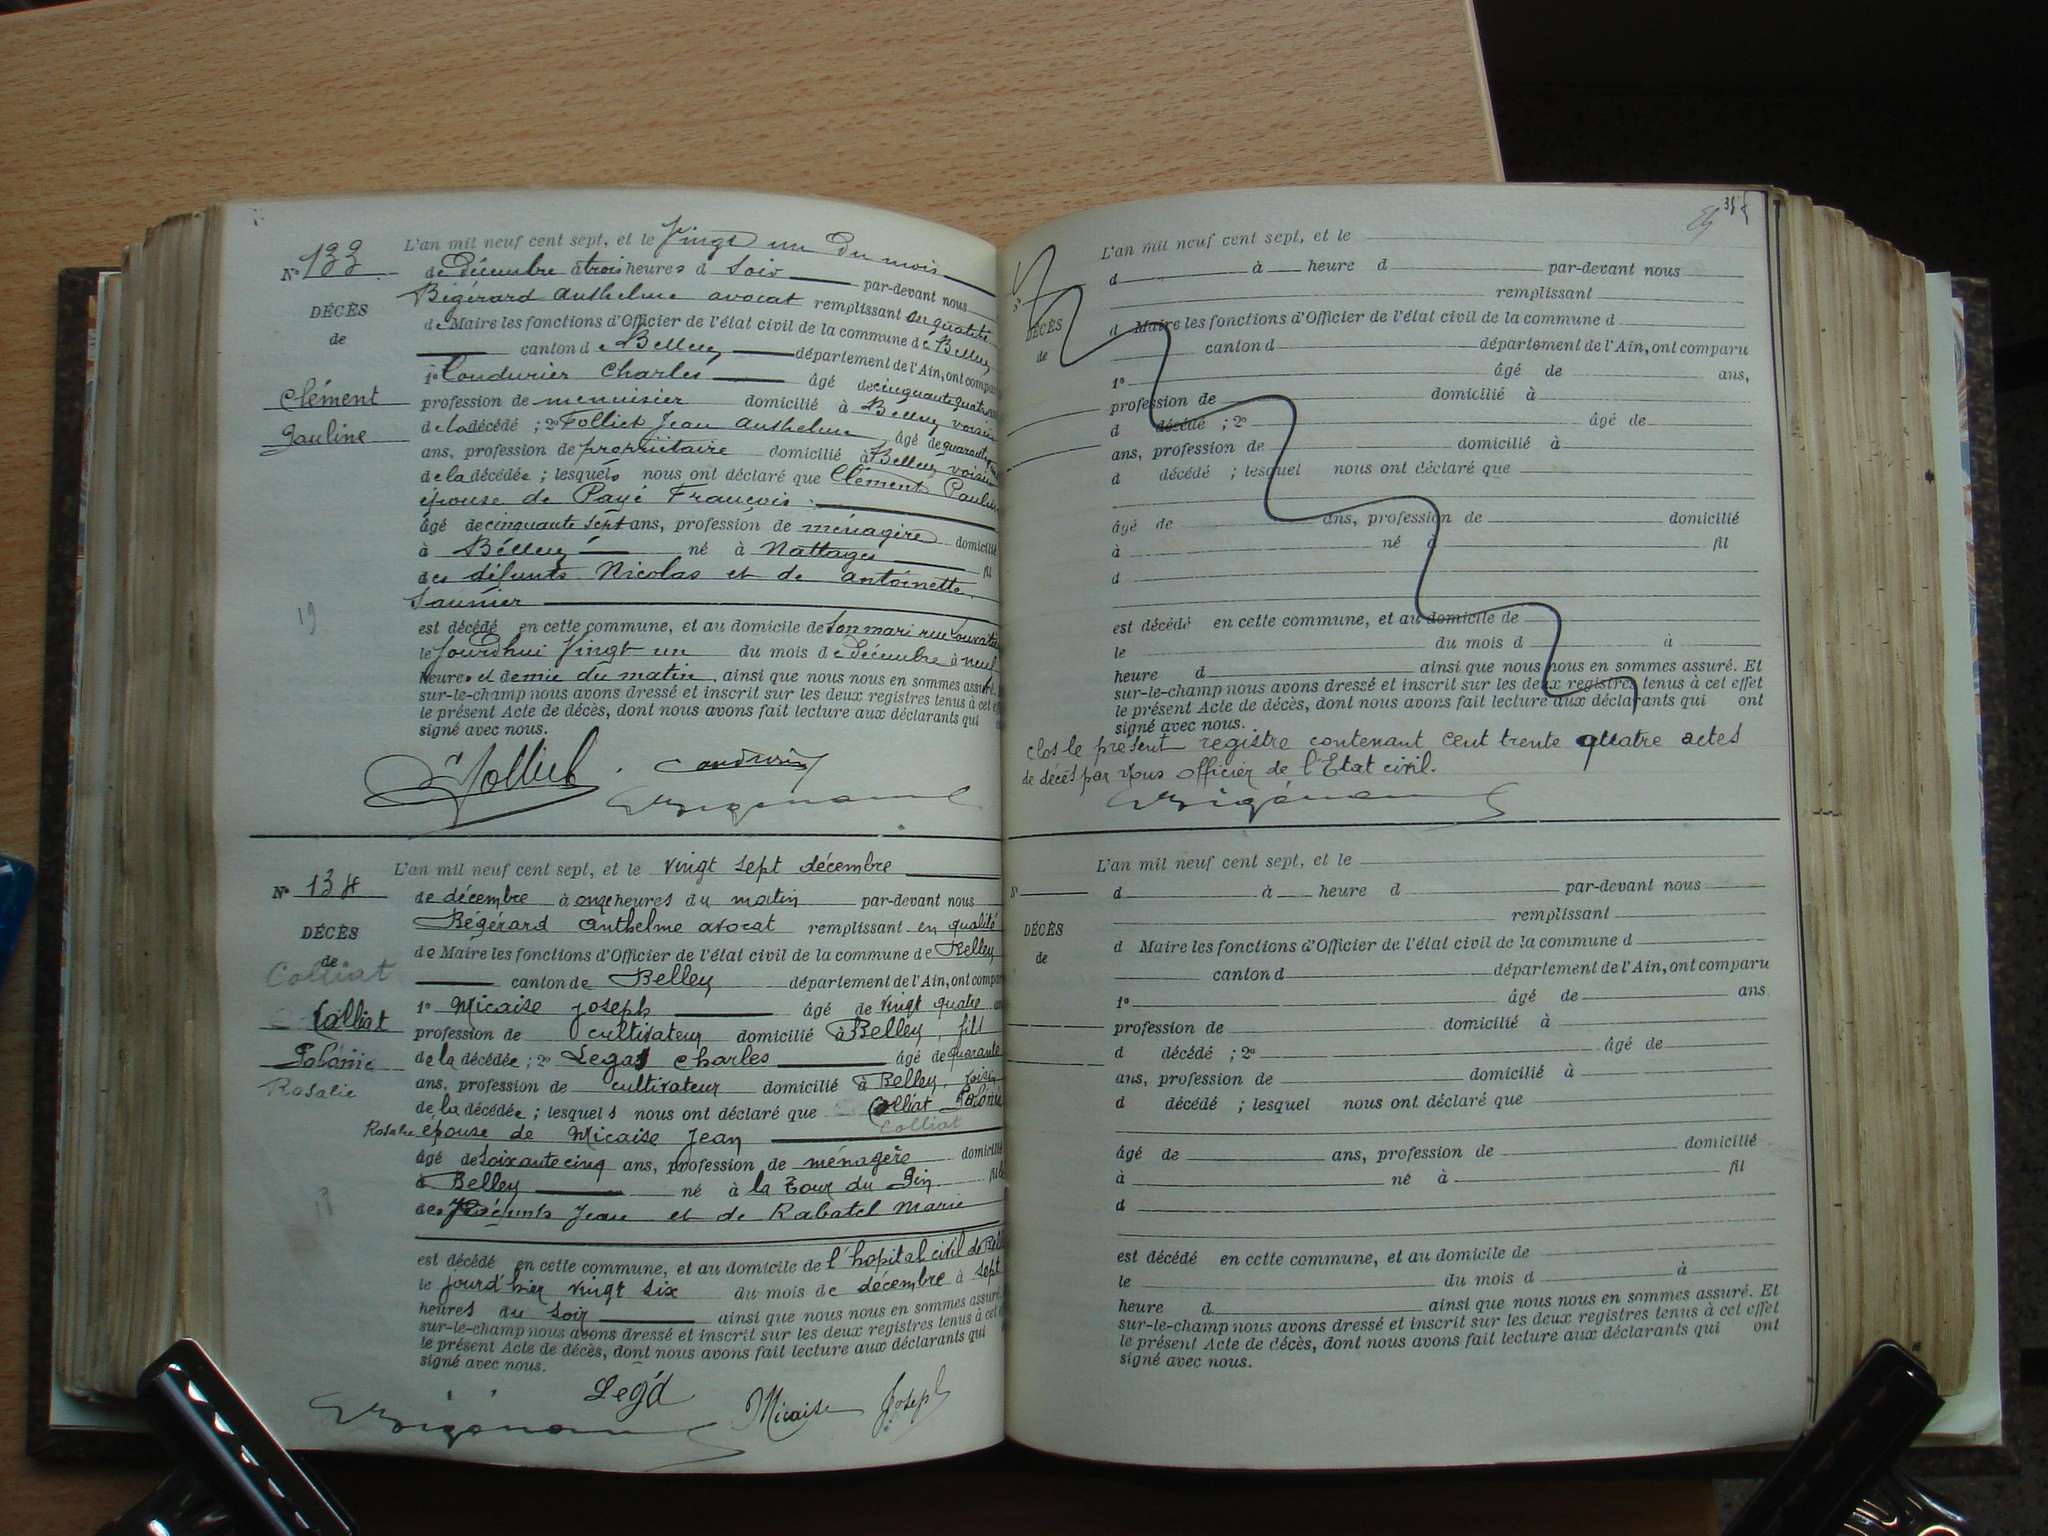 N° 133
DÉCÈS
de
Clément
Pauline
L'an mil neuf cent sept, et le Vingt un du mois
de Décembre à trois heures d soir par-devant nous
Bégérard Anthelme avocat remplissant en qualité
de Maire les fonctions d'Officier de l'état civil de la commune de Belley
canton de Belley département de l'Ain, ont comparu
1° Coudurier Charles âgé de cinquante quatre ans
profession de menuisier domicilié à Belley voisin
de la décédé ; 2° Folliet Jean Anthelme âgé de quarante
ans, profession de propriétaire domicilié à Belley voisin
de la décédée ; lesquels nous ont déclaré que Clément Pauline
épouse de Payé François
âgé de cinquante sept ans, profession de ménagère domicilié
à Belley né à Nattages fil
des défunts Nicolas et de Antoinette
Saunier
est décédé en cette commune, et au domicile de son mari rue
le jourdhui Vingt un du mois de Décembre à neuf
heures et demie du matin, ainsi que nous nous en sommes assuré. Et
sur-le-champ nous avons dressé et inscrit sur les deux registres tenus à cet effet
le présent Acte de décès, dont nous avons fait lecture aux déclarants qui
signé avec nous.
Folliet Coudurier
Bégérard
N° 134
DÉCÈS
de
Colliat
Colliat
Rosalie
L'an mil neuf cent sept, et le vingt sept décembre
de décembre à onze heures du matin par-devant nous
Bégérard Anthelme avocat remplissant en qualité
de Maire les fonctions d'Officier de l'état civil de la commune de Belley
canton de Belley département de l'Ain, ont comparu
1° Micaise Joseph âgé de vingt quatre ans
profession de cultivateur domicilié à Belley, fils
de la décédée ; 2° Charles âgé de quarante
ans, profession de cultivateur domicilié à Belley, voisin
de la décédée ; lesquels nous ont déclaré que Colliat
Colliat
Rosalie épouse de Micaise Jean
âgé de soixante cinq ans, profession de ménagère domicilié
à Belley né à la Tour du Pin fille
des défunts Jean et de Rabatel Marie
est décédé en cette commune, et au domicile de l'hopital civil de Belley
le jourd'hier vingt six du mois de décembre à sept
heures du soir ainsi que nous nous en sommes assuré.
sur-le-champ nous avons dressé et inscrit sur les deux registres tenus à cet
le présent Acte de décès, dont nous avons fait lecture aux déclarants qui
signé avec nous.
Micaise Joseph
Bégérard
L'an mil neuf cent sept, et le
d à heure d par-devant nous
remplissant
DÉCÈS
de
d Maire les fonctions d'Officier de l'état civil de la commune d
canton d département de l'Ain, ont comparu
1° âgé de ans,
profession de domicilié à
d décédé ; 2° âgé de
ans, profession de domicilié à
d décédé ; lesquel nous ont déclaré que
âgé de ans, profession de domicilié
à né à fil
d
est décédé en cette commune, et au domicile de
le du mois d à
heure d ainsi que nous nous en sommes assuré. Et
sur-le-champ nous avons dressé et inscrit sur les deux registres tenus à cet effet
le présent Acte de décès, dont nous avons fait lecture aux déclarants qui ont
signé avec nous.
Clos le présent registre contenant cent trente quatre actes
de décès par Nous officier de l'Etat civil.
Bégérard
L'an mil neuf cent sept, et le
N° d à heure d par-devant nous
remplissant
DÉCÈS
de
d Maire les fonctions d'Officier de l'état civil de la commune d
canton d département de l'Ain, ont comparu
1° âgé de ans.
profession de domicilié à
d décédé ; 2° âgé de
ans, profession de domicilié à
d décédé ; lesquel nous ont déclaré que
âgé de ans, profession de domicilié
à né à fil
d
est décédé en cette commune, et au domicile de
le du mois d à
heure d ainsi que nous nous en sommes assuré. Et
sur-le-champ nous avons dressé et inscrit sur les deux registres tenus à cet effet
le présent Acte de décès, dont nous avons fait lecture aux déclarants qui ont
signé avec nous.